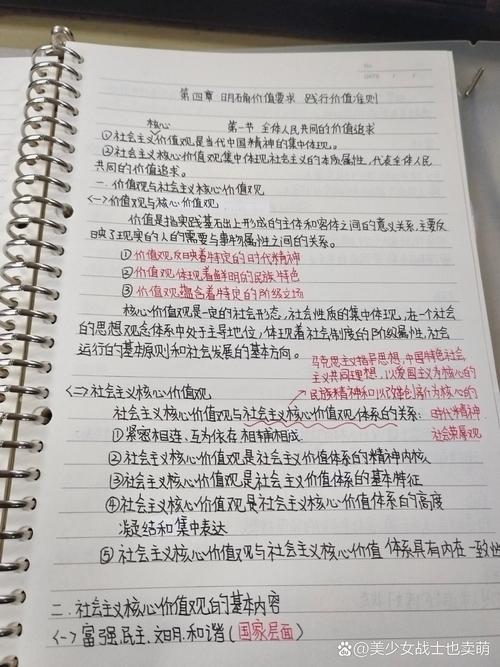 No.
DATE / /
第四章 明确价值要求 践行价值准则
核心 第一节 全体人民共同的价值追求
①社会主义价值观是当代中国精神的集中体现。
②社会主义核心价值观集中体现社会主义的本质属性，代表全体人民
共同的价值追求。
一、价值观与社会主义核心价值观
<一>价值观与核心价值观
价值是指实践基石出上形成的主体和客体之间的意义关系，主要反
映了现实的人的需要与事物属性之间的关系。
①价值观反映着特定的时代精神
②价值观体现着鲜明的民族特色
③价值观蕴含着特定的阶级立场
核心价值观是一定的社会形态，社会性质的集中体现，在一个社会
的思想观念体系中处于主导地位，体现着社会制度的阶级属性，社会
运行的基本原则和社会发展的基本方向。
马克思主义指导思想，中国特色社会
主义共同理想，以爱国主义为核心的
<二>社会主义核心价值观
民族精神和以改革创新为核心的
社会主义核心价值观与社会主义核心价值观体系的关系：
时代精神
①紧密相连、互为依存 相辅相成
社会荣辱观
②社会主义核心价值观是社会主义价值体系的精神内核
③社会主义核心价值观是社会主义价值体系的基本特征
④社会主义核心价值观是社会主义核心价值体系的高度
凝结和集中表达
⑤社会主义核心价值观与社会主义核心价值 体系具有内在一致性
二、社会主义核心价值观的基本内容
<一>富强、民主、文明、和谐(国家层面)
@美少女战士也卖萌